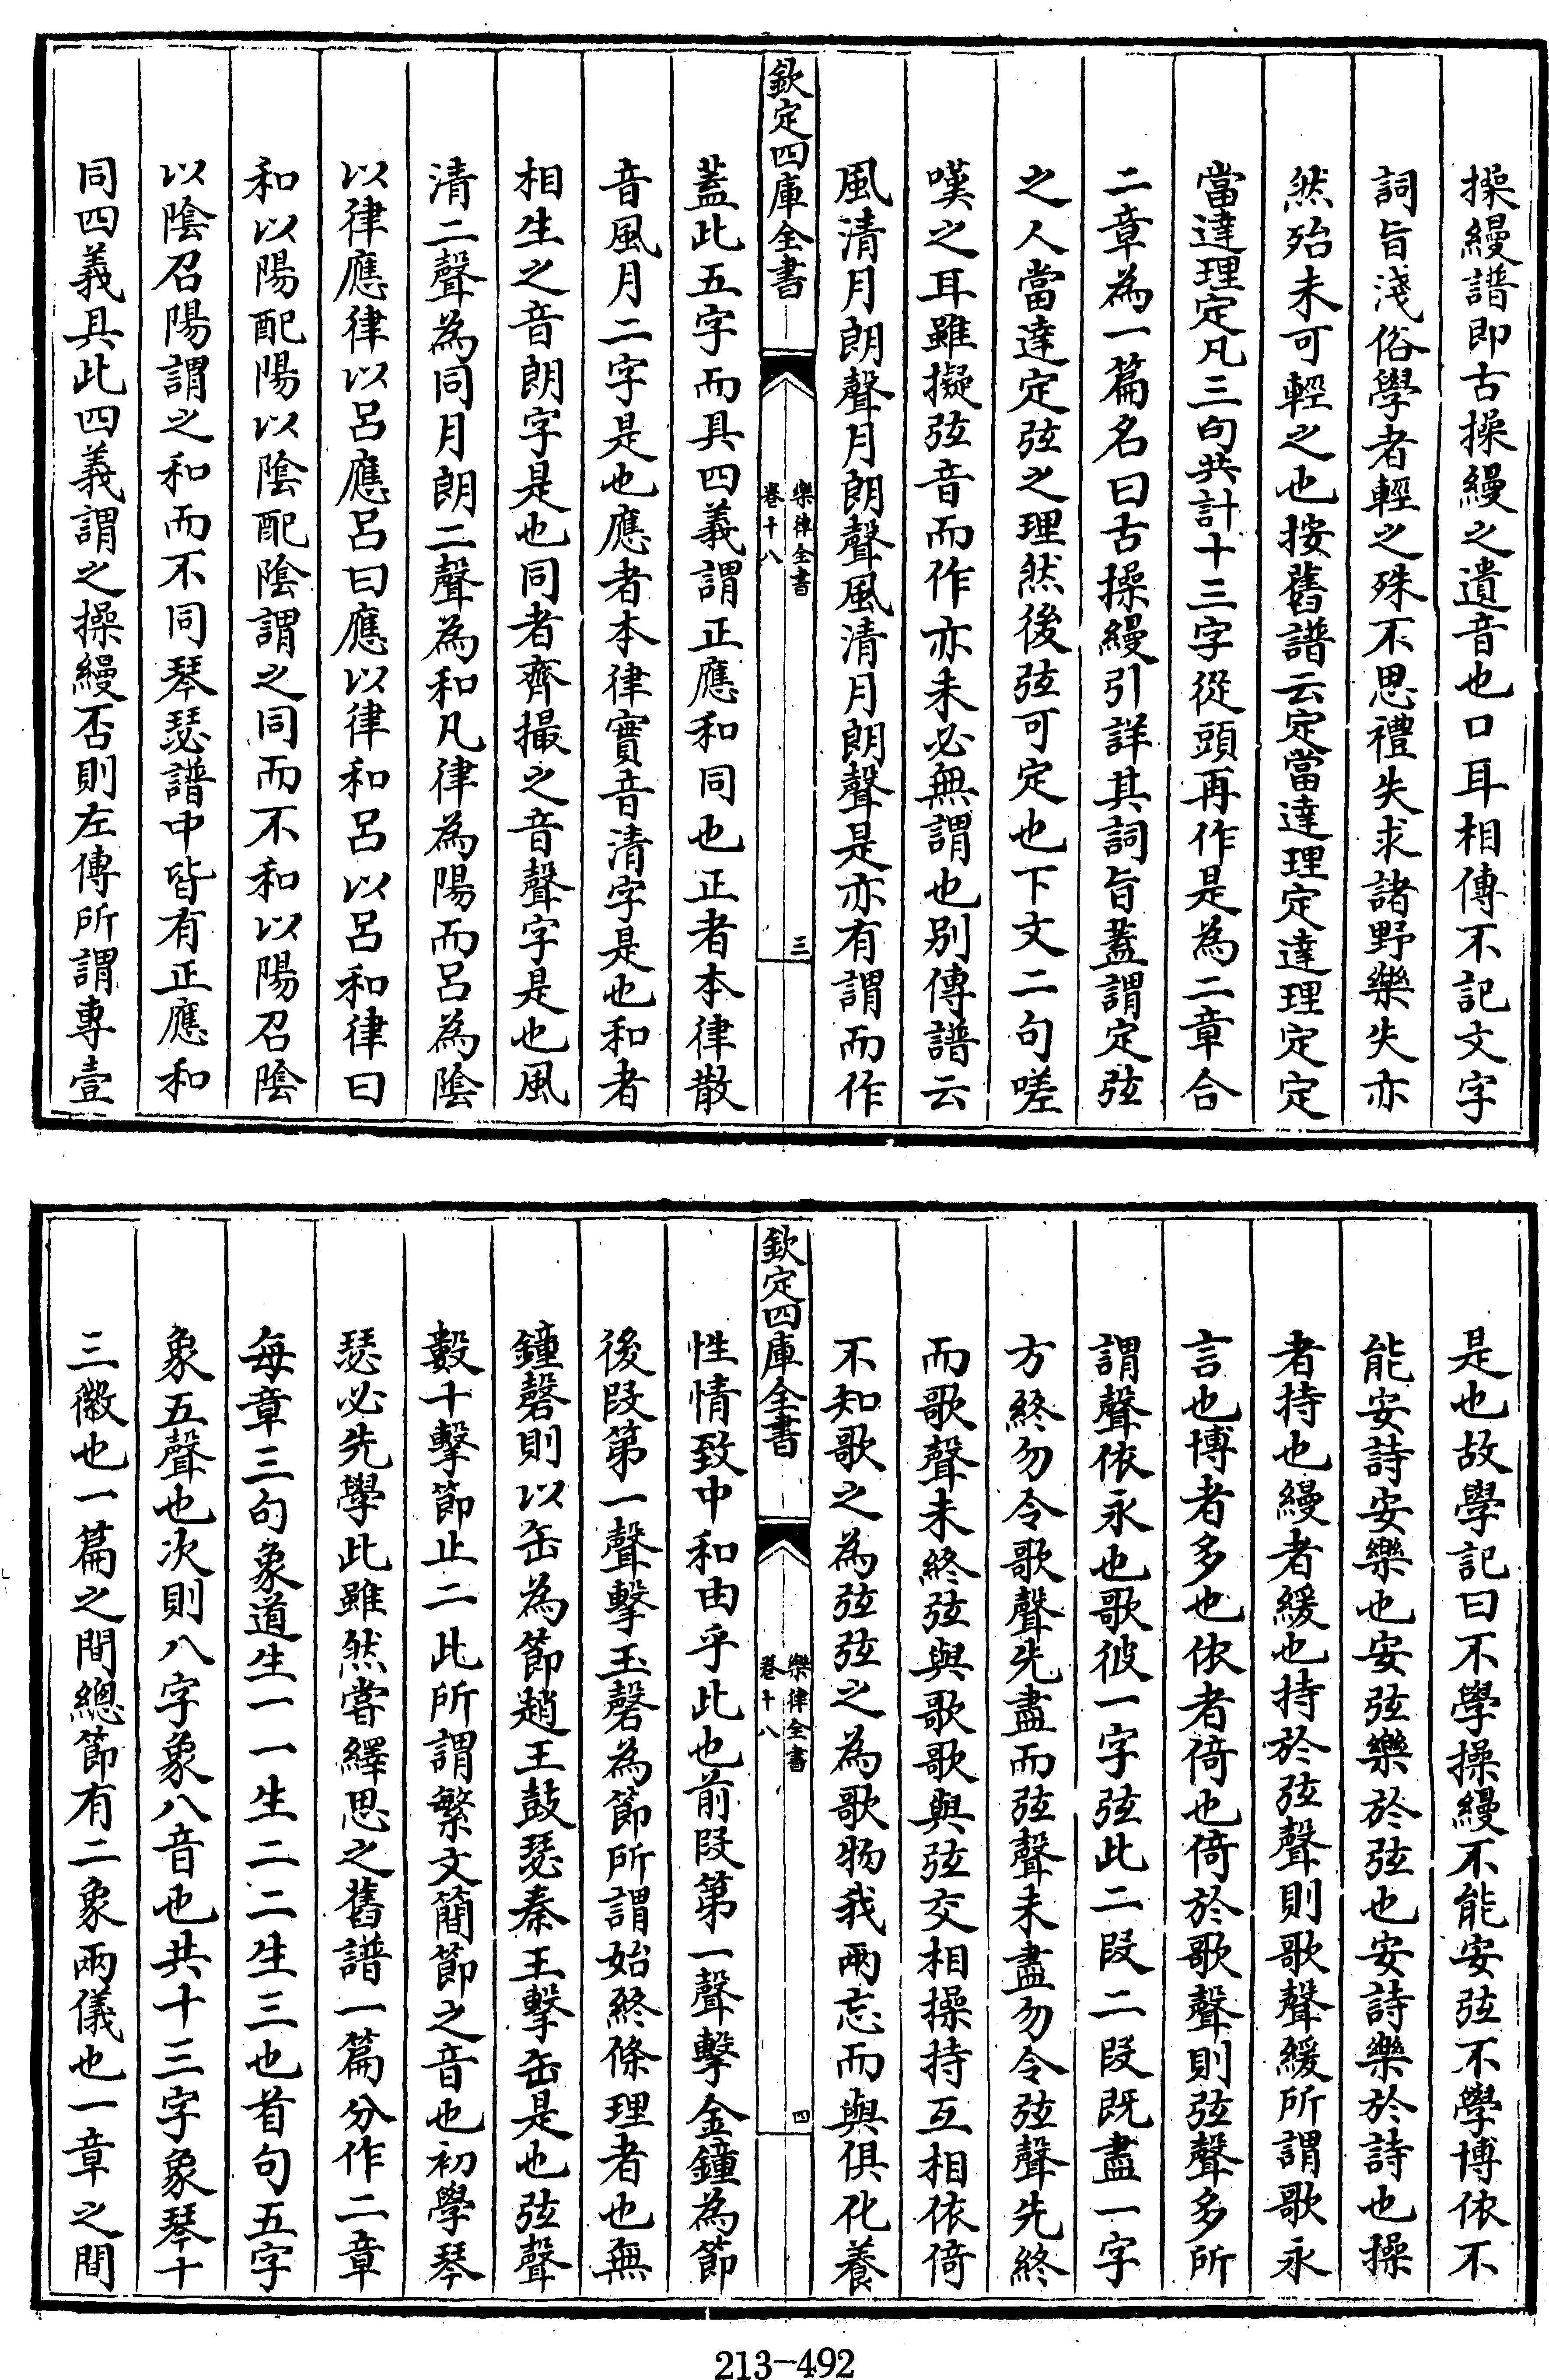 操縵譜即古操縵之遺音也口耳相傳不記文字
詞旨淺俗學者輕之殊不思禮失求諸野樂失亦
然殆未可輕之也按舊譜云定當達理定達理定定
當達理定凡三句共計十三字從頭再作是為二章合
二章為一篇名曰古操縵引詳其詞旨蓋謂定弦
之人當達定弦之理然後弦可定也下文二句嗟
嘆之耳雖擬弦音而作亦未必無謂也別傳譜云
風清月朗聲月朗聲風清月朗聲是亦有謂而作
欽定四庫全書
樂律全書
卷十八
三
蓋此五字而具四義謂正應和同也正者本律散
音風月二字是也應者本律實音清字是也和者
相生之音朗字是也同者齊撮之音聲字是也風
清二聲為同月朗二聲為和凡律為陽而呂為陰
以律應律以呂應呂曰應以律和呂以呂和律曰
和以陽配陽以陰配陰謂之同而不和以陽召陰
以陰召陽謂之和而不同琴瑟譜中皆有正應和
同四義具此四義謂之操縵否則左傳所謂專壹
是也故學記曰不學操縵不能安弦不學博依不
能安詩安樂也安弦樂於弦也安詩樂於詩也操
者持也縵者緩也持於弦聲則歌聲緩所謂歌永
言也博者多也依者倚也倚於歌聲則弦聲多所
謂聲依永也歌彼一字弦此二段二段既盡一字
方終勿令歌聲先盡而弦聲未盡勿令弦聲先終
而歌聲未終弦與歌歌與弦交相操持互相依倚
不知歌之為弦弦之為歌物我兩忘而與俱化養
欽定四庫全書
樂律全書
卷十八
四
性情致中和由乎此也前段第一聲擊金鐘為節
後段第一聲擊玉磬為節所謂始終條理者也無
鐘磬則以缶為節趙王鼓瑟秦王擊缶是也弦聲
數十擊節止二此所謂繁文簡節之音也初學琴
瑟必先學此雖然嘗繹思之舊譜一篇分作二章
每章三句象道生一一生二二生三也首句五字
象五聲也次則八字象八音也共十三字象琴十
三徽也一篇之間總節有二象兩儀也一章之間
213-492